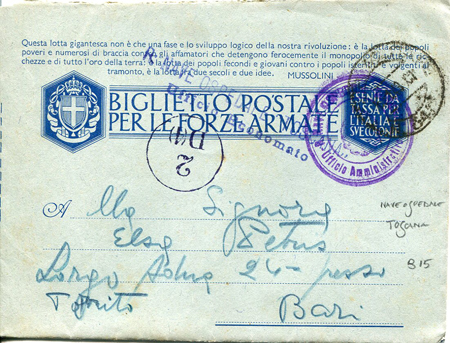 Questa lotta gigantesca non è che una fase e lo sviluppo logico della nostra rivoluzione: è la lotta dei popoli
poveri e numerosi di braccia contro gli affamatori che detengono ferocemente il monopolio di tutte le ric-
chezze e di tutto l'oro della terra: è la lotta dei popoli fecondi e giovani contro i popoli isteriliti e volgenti al
tramonto, è la lotta tra due secoli e due idee. MUSSOLINI
R. NAVE
BIGLIETTO POSTALE
PER LE FORZE ARMATE
ESENTE DA
TASSA PER
L'ITALIA E
SVE COLONIE
Ufficio Amministrativo
2
A Alla Signora
Elsa
Largo 24
Bari
NAVE OSPEDALE
TOSCANA
B15